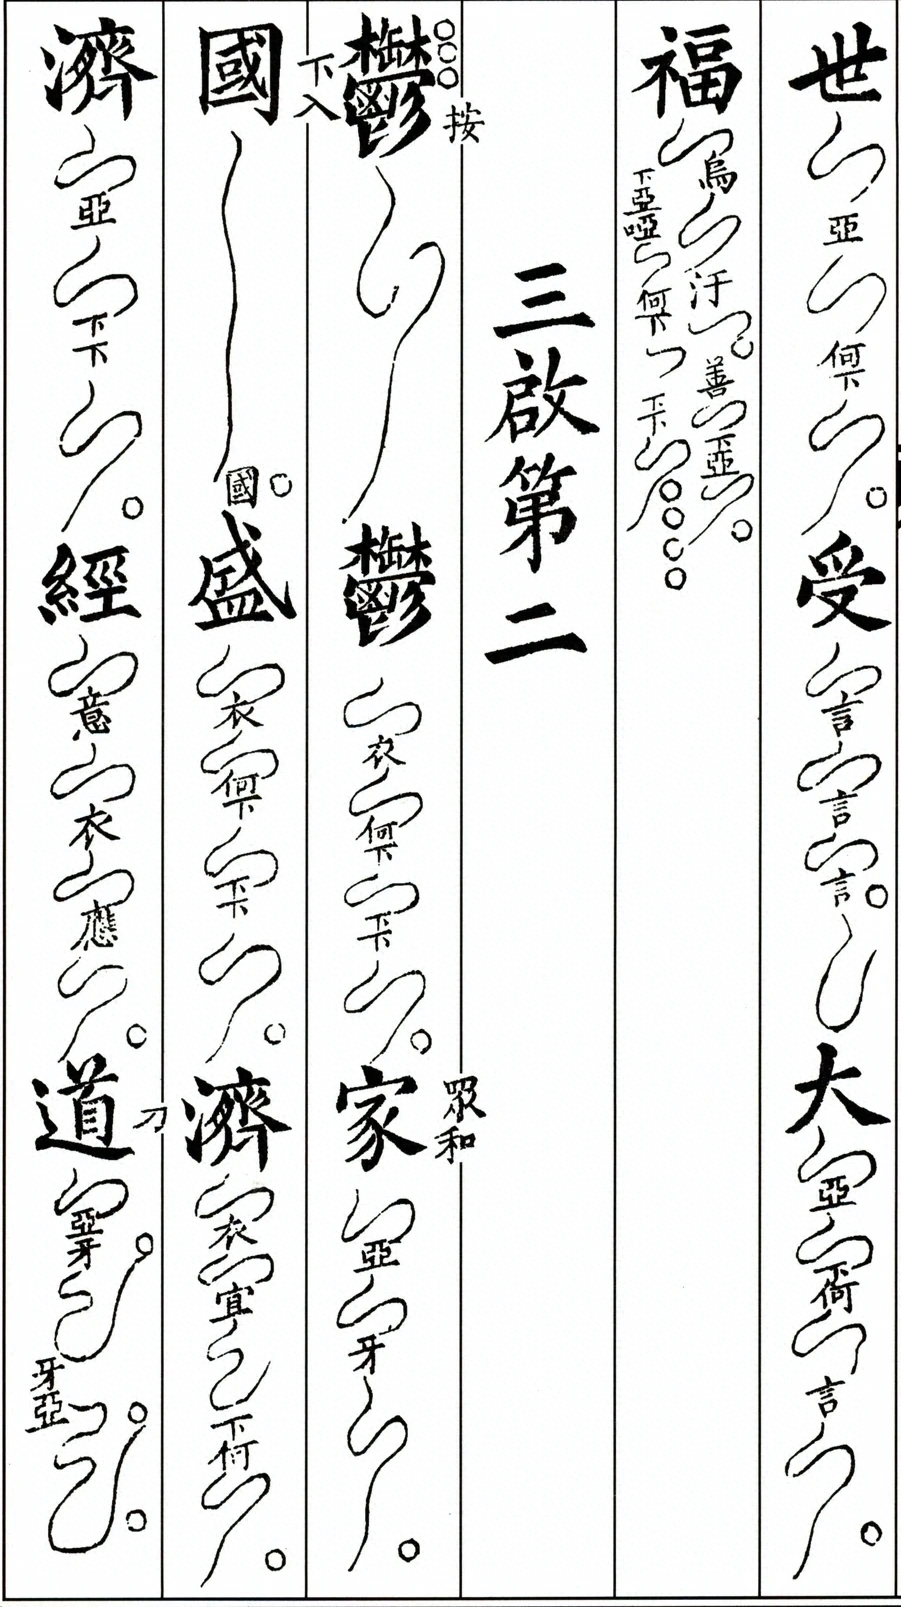 世亞何下受言言言大亞下何言
福烏汙善下亞下亞啞何下下下
三啟第二
按鬱鬱衣何下下下家眾和亞牙
下入國國盛衣何下下下濟衣宜下何
濟亞下下經意衣應道刀亞牙牙亞